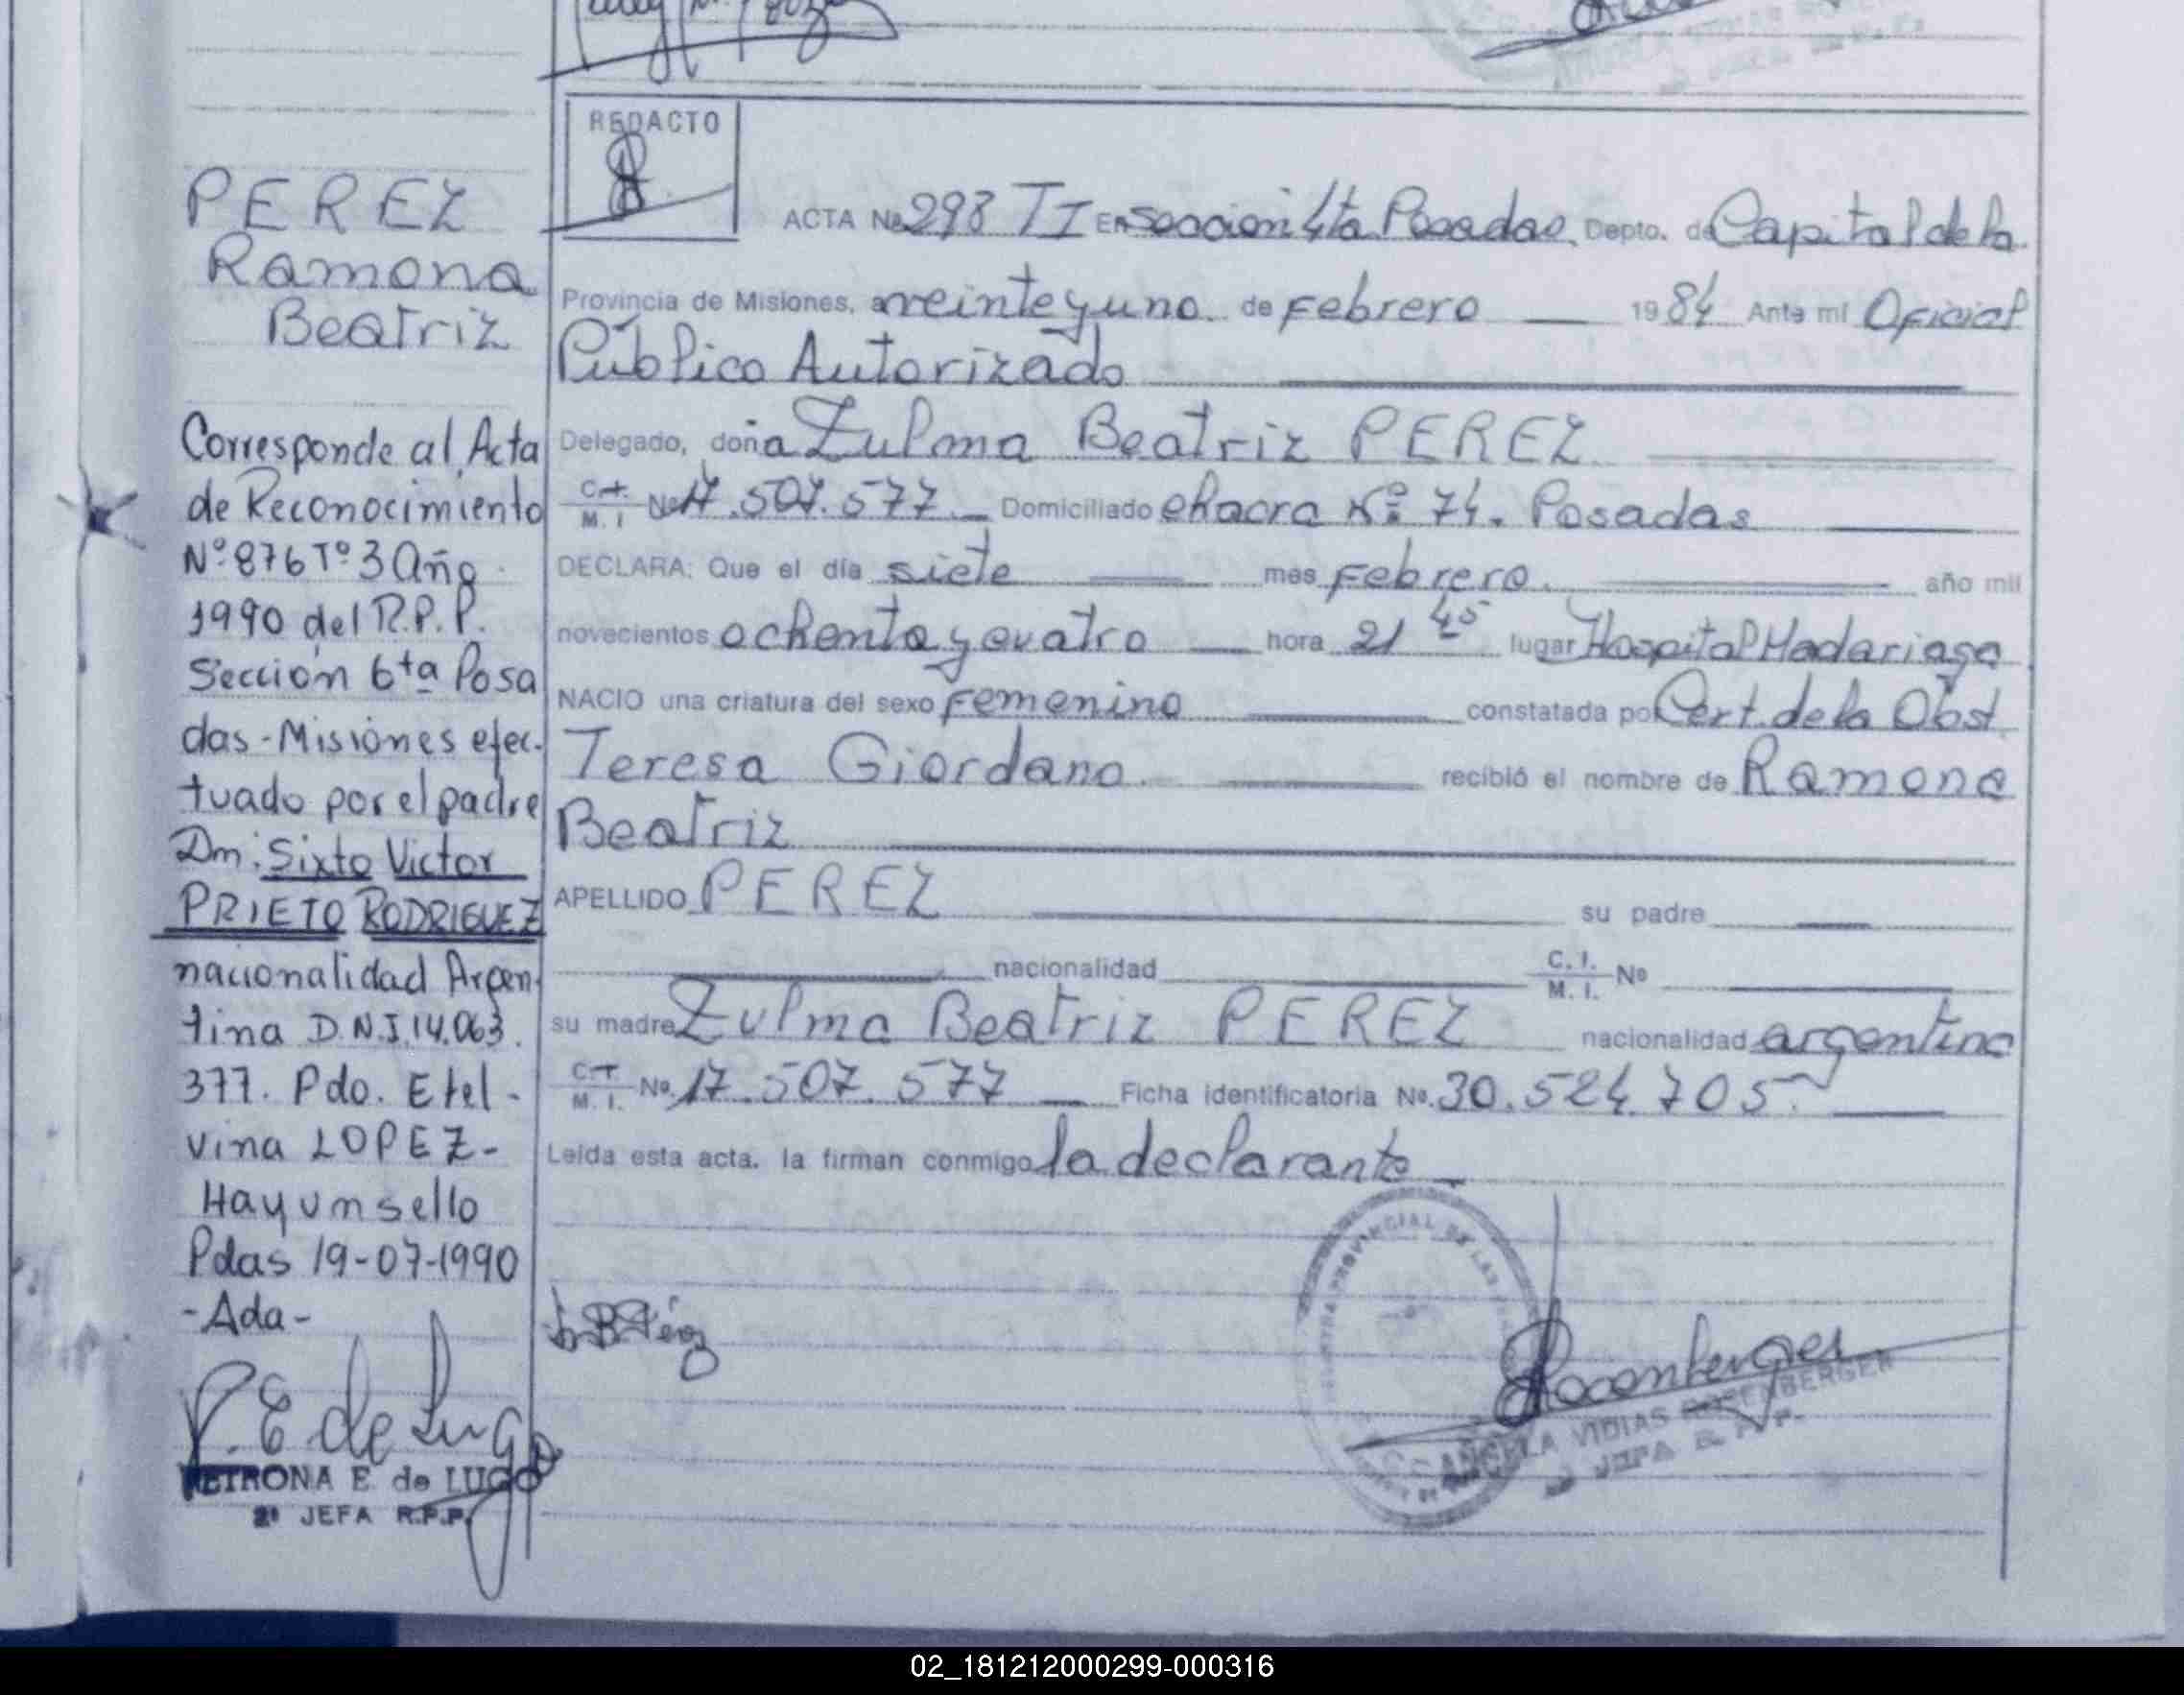 REDACTO
PEREZ
Ramona
Beatriz
Corresponde al Acta
de Reconocimiento
Nº 876 Tº 3 Año
1990 del R.P.P.
Sección 6ta Posa
das-Misiones efec-
tuado por el padre
Dn. Sixto Victor
PRIETO RODRIGUEZ
nacionalidad Argen
tina D.N.I. 14.063.
377. Pdo. Etel-
vina LOPEZ-
Hay un sello
Pdas 19-07-1990
-Ada-
P. E de Lugo
PETRONA E de LUGO
2ª JEFA R.P.P.
ACTA Nº 298 TI En seccion 4ta Posadas. Depto. de Capital de la
Provincia de Misiones, a veinte y uno de Febrero 1984 Ante mi Oficial
Público Autorizado
Delegado, doña Zulma Beatriz PEREZ
C.I. M. I Nº 17.507.577 Domiciliado chacra Nº 74. Posadas
DECLARA: Que el día siete mes Febrero. año mil
novecientos ochenta y cuatro hora 21 45 lugar Hospital Madariaga
NACIO una criatura del sexo Femenino constatada por Cert. de la Obst
Teresa Giordano. recibió el nombre de Ramona
Beatriz
APELLIDO PEREZ su padre
nacionalidad C. I. M. I. Nº
su madre Zulma Beatriz PEREZ nacionalidad argentina
C.I. M. I. Nº 17.507.577 Ficha identificatoria Nº. 30.524.705
Leida esta acta. la firman conmigo la declarante
Rosenberger
ANGELA VIDIAS ROSENBERGER
JEFA R. P. P.
02_181212000299-000316